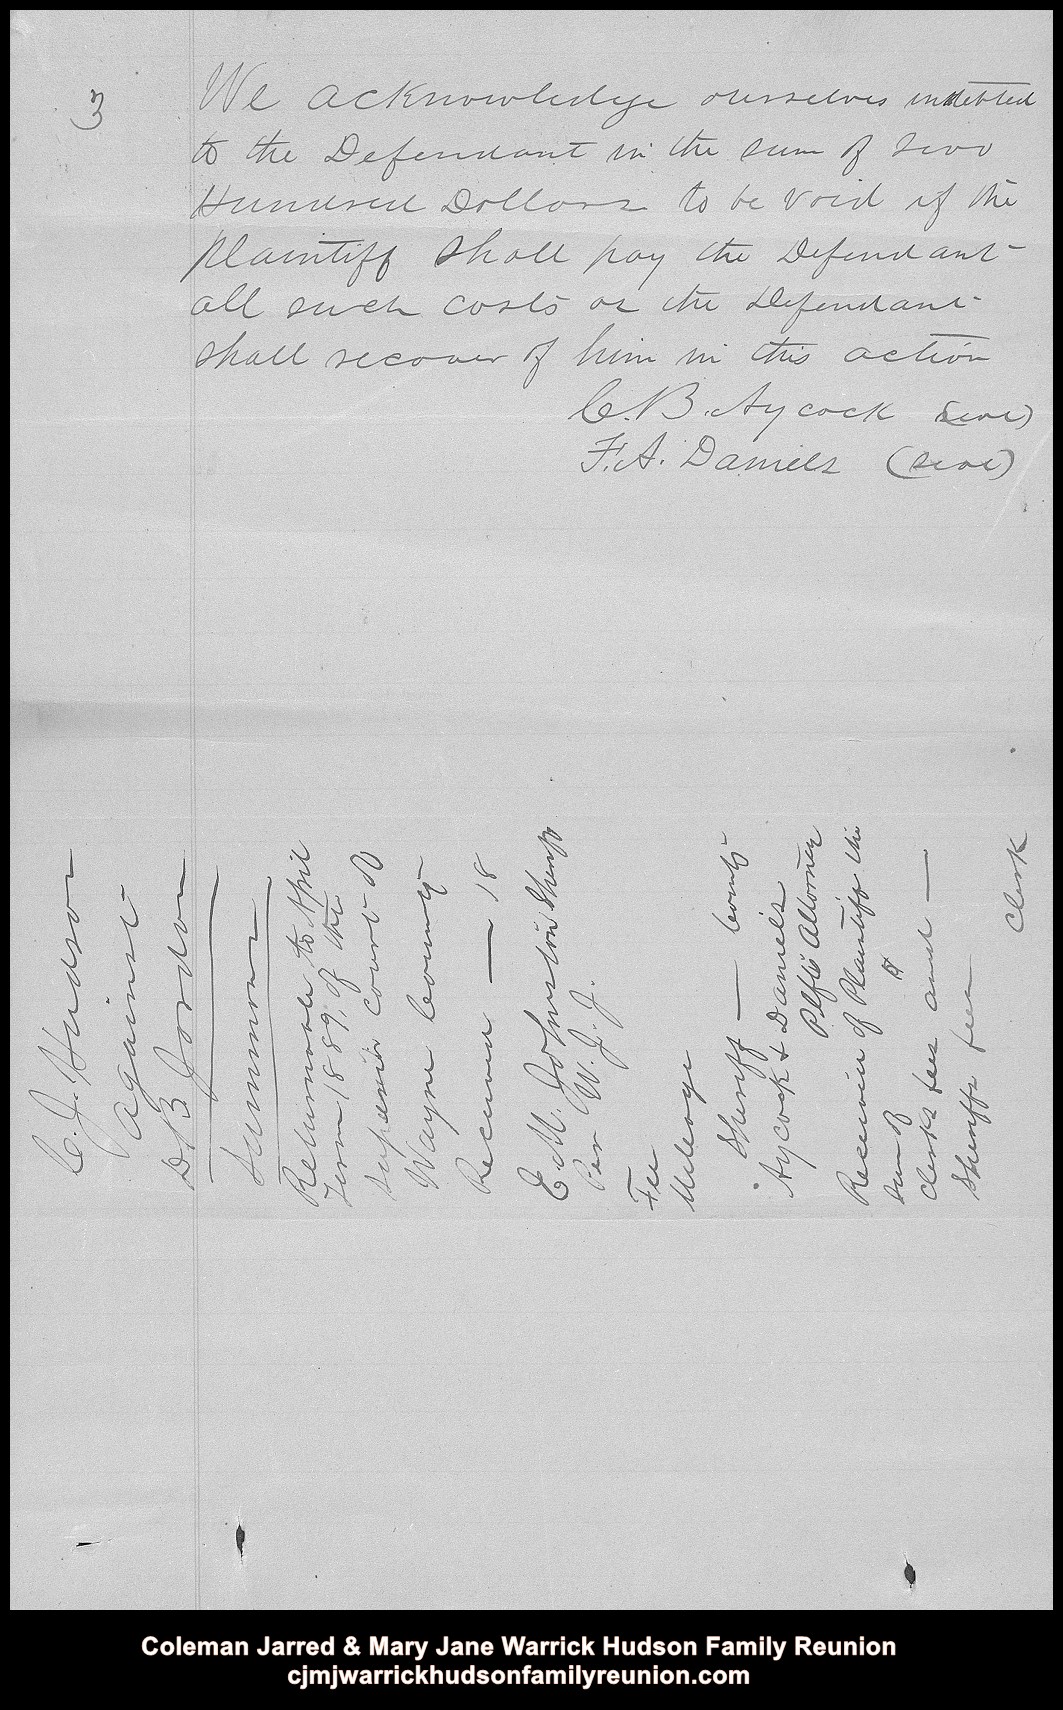 3
We acknowledge ourselves indebted
to the Defendant in the sum of Two
Hundred Dollars to be void if the
Plaintiff shall pay the Defendant
all such costs as the Defendant
shall recover of him in this action
C. B. Aycock (seal)
F. A. Daniels (seal)
C. J. Hudson
against
D B Jordon
Summons
Returnable to April
Term 1889, of the
Superior Court of
Wayne County
Received — 18
E. M. Johnston Sheriff
Per W. J. J.
Fee
Mileage
Sheriff — County
Aycock & Daniels
Plffs Attorney
Receivin of Plaintiff the
sum of $
Clerks fees amt —
Sheriffs fees
Clerk
Coleman Jarred & Mary Jane Warrick Hudson Family Reunion
cjmjwarrickhudsonfamilyreunion.com